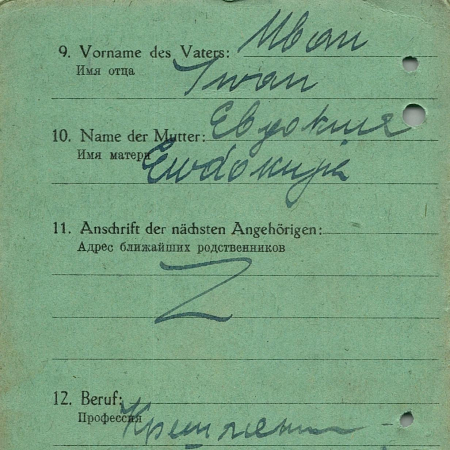 9. Vorname des Vaters: Иван
Имя отца
Iwan
10. Name der Mutter: Евдокия
Имя матери
Ewdokija
11. Anschrift der nächsten Angehörigen:
Адрес ближайших родственников
12. Beruf:
Профессия